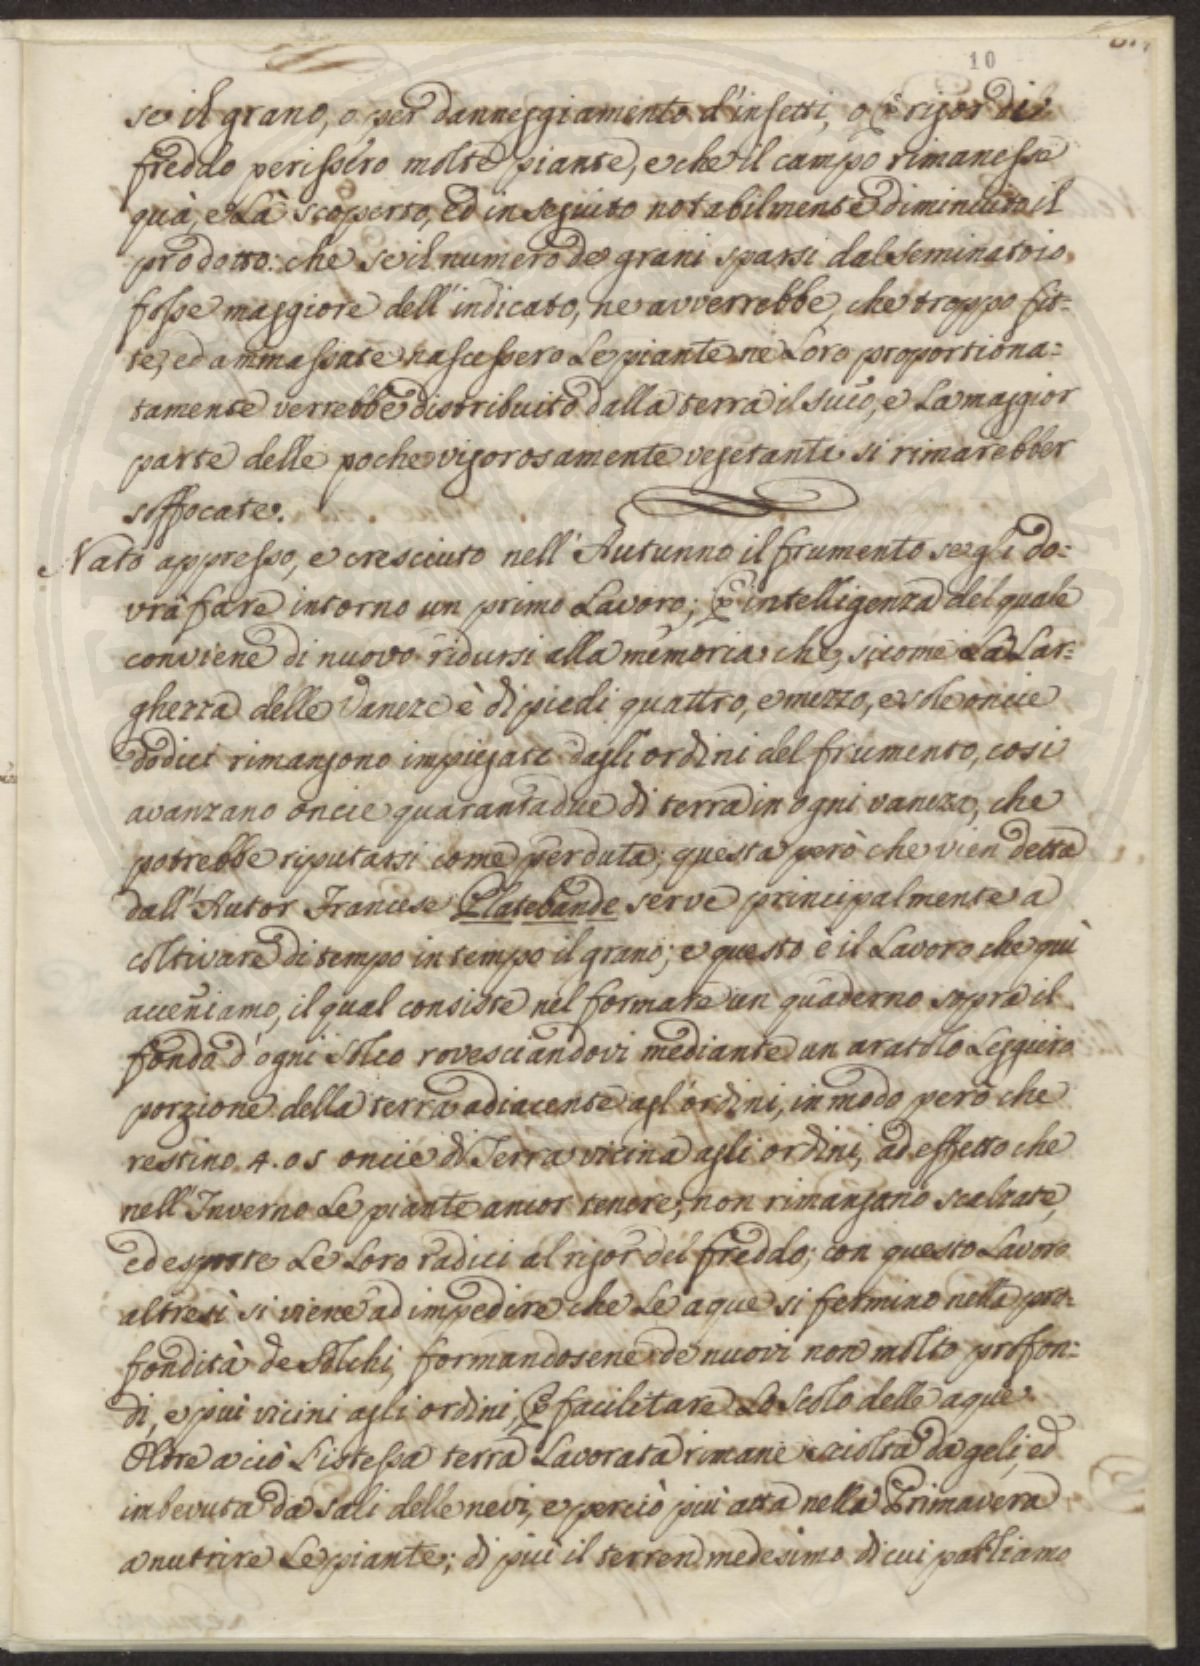 10
se il grano, o per danneggiamento d'insetti, o p rigor del
freddo perissero molte piante, e che il campo rimanesse
quà, e là scoperto, ed in seguito notabilmente diminuito il
prodotto: che se il numero de grani sparsi dal seminatoio
fosse maggiore dell'indicato, ne avverrebbe, che troppo fit=
te, ed ammassate nascessero le piante ne loro proportiona=
tamente verrebbe distribuito dalla terra il suco, e la maggior
parte delle poche vigorosamente vegetanti si rimarebber
soffocate.
Nato appresso, e cresciuto nell'Autunno il frumento se gli do=
vrà fare intorno un primo Lavoro; p intelligenza del quale
conviene di nuovo ridursi alla memoria che, siccome la Lar=
ghezza delle Vaneze è di piedi quattro, e mezzo, e sole oncie
dodici rimangono impiegate dagli ordini del frumento, cosi
avanzano oncie quarantadue di terra in ogni vaneza, che
potrebbe riputarsi come perduta; questa però che vien detta
dall'Autor Francese Platebande serve principalmente a
coltivare di tempo in tempo il grano; e questo è il Lavoro che quì
acceniamo, il qual consiste nel formare un quaderno sopra il
fondo d'ogni solco rovesciandovi mediante un aratolo Leggiero
porzione della terra adiacente agl'ordini, in modo però che
restino 4. o 5 oncie di Terra vicina agli ordini, ad effetto che
nell'Inverno Le piante ancor tenere, non rimangano scalzate,
ed esposte Le Loro radici al rigor del freddo; con questo Lavoro
altresì si viene ad impedire che Le aque si fermino nella pro=
fondità de Solchi, formandosene de nuovi non molto profon=
di, e più vicini agli ordini, p facilitare Lo scolo delle aque.
Oltre a ciò L'istessa terra Lavorata rimane sciolta da geli, ed
imbevuta da sali delle nevi, e perciò più atta nella Primavera
a nutrire Le piante; di più il terren medesimo di cui parliamo